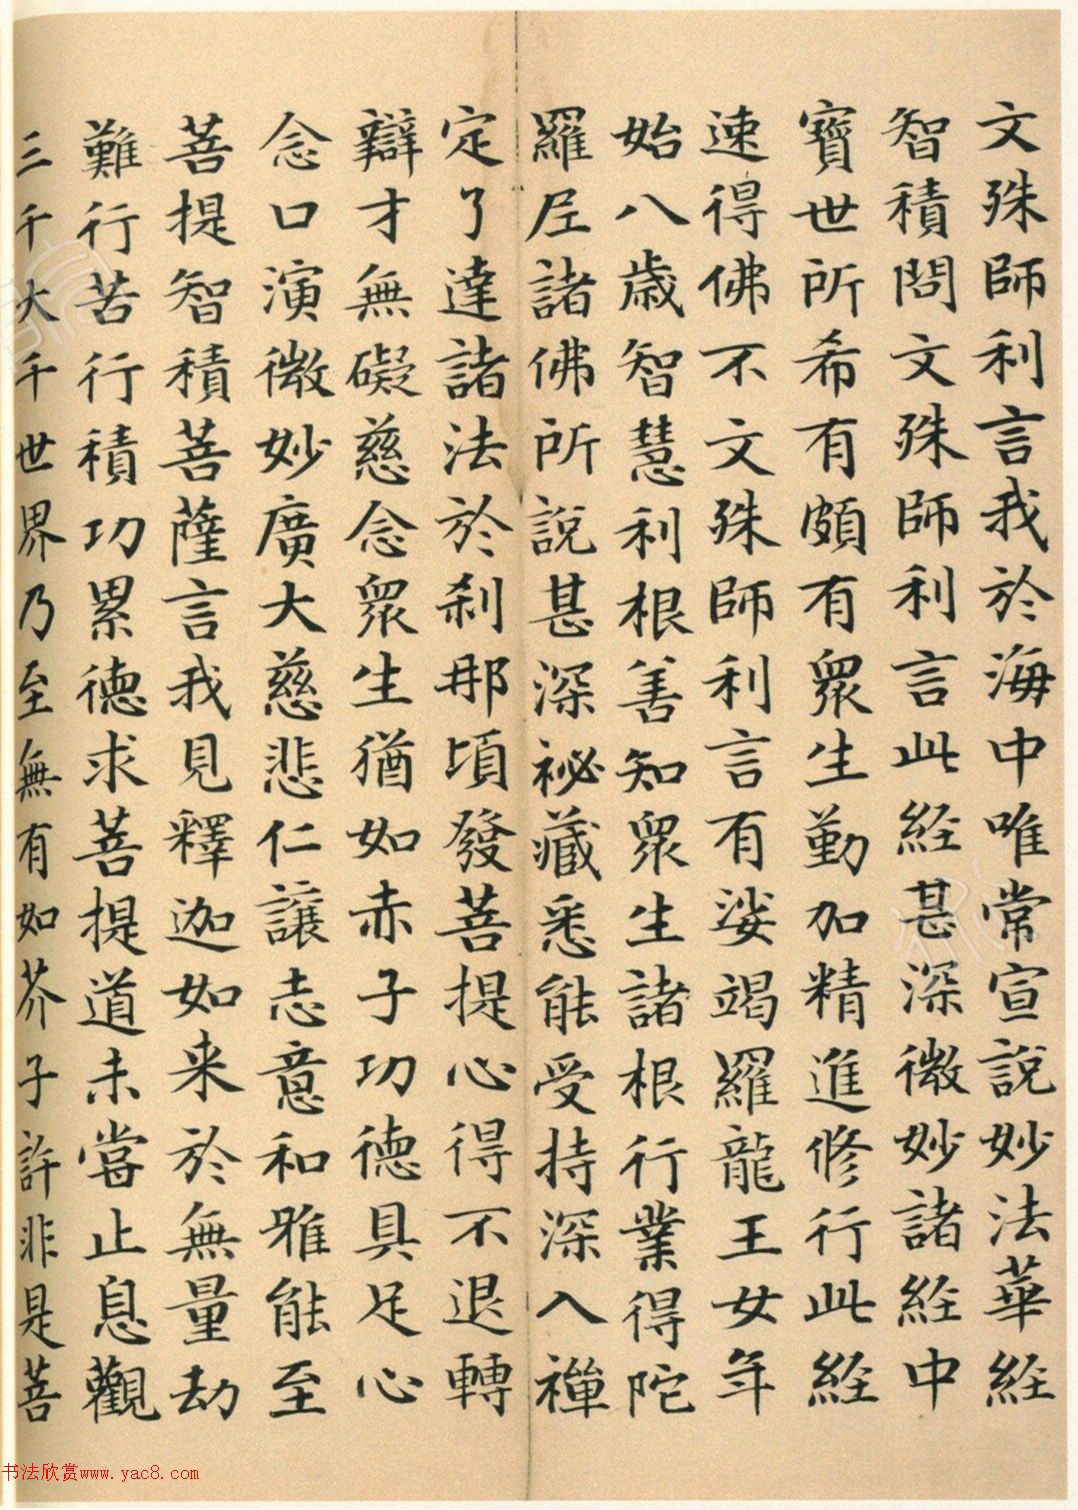 文殊師利言我於海中唯常宣說妙法華經
智積問文殊師利言此經甚深微妙諸經中
寶世所希有頗有衆生勤加精進修行此經
速得佛不文殊師利言有娑竭羅龍王女年
始八歲智慧利根善知衆生諸根行業得陀
羅尼諸佛所說甚深祕藏悉能受持深入禪
定了達諸法於刹那頃發菩提心得不退轉
辯才無礙慈念衆生猶如赤子功德具足心
念口演微妙廣大慈悲仁讓志意和雅能至
菩提智積菩薩言我見釋迦如来於無量劫
難行苦行積功累德求菩提道未嘗止息觀
三千大千世界乃至無有如芥子許非是菩
书法欣赏www.yac8.com